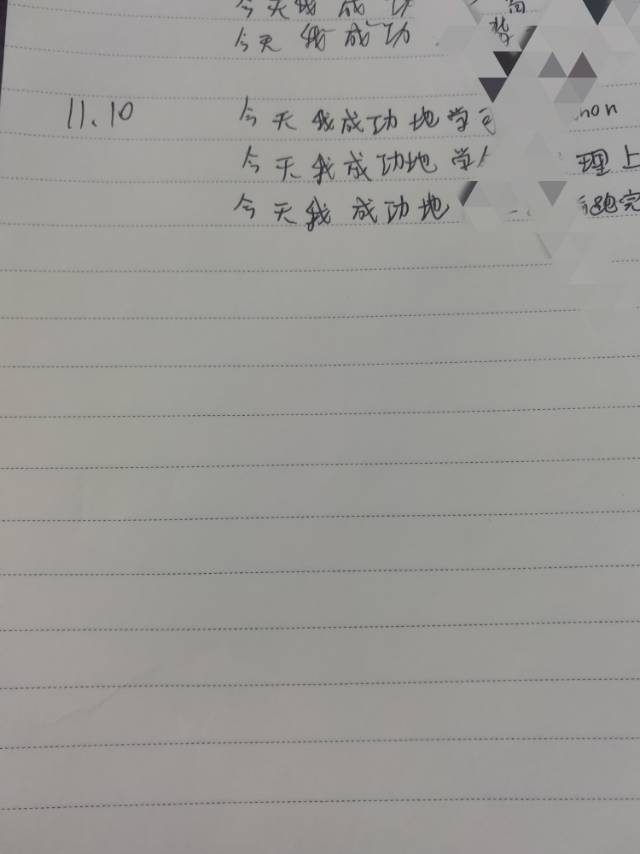 今天我成功
今天我成功
11.10 今天我成功地学non
今天我成功地学理上
今天我成功地跑完